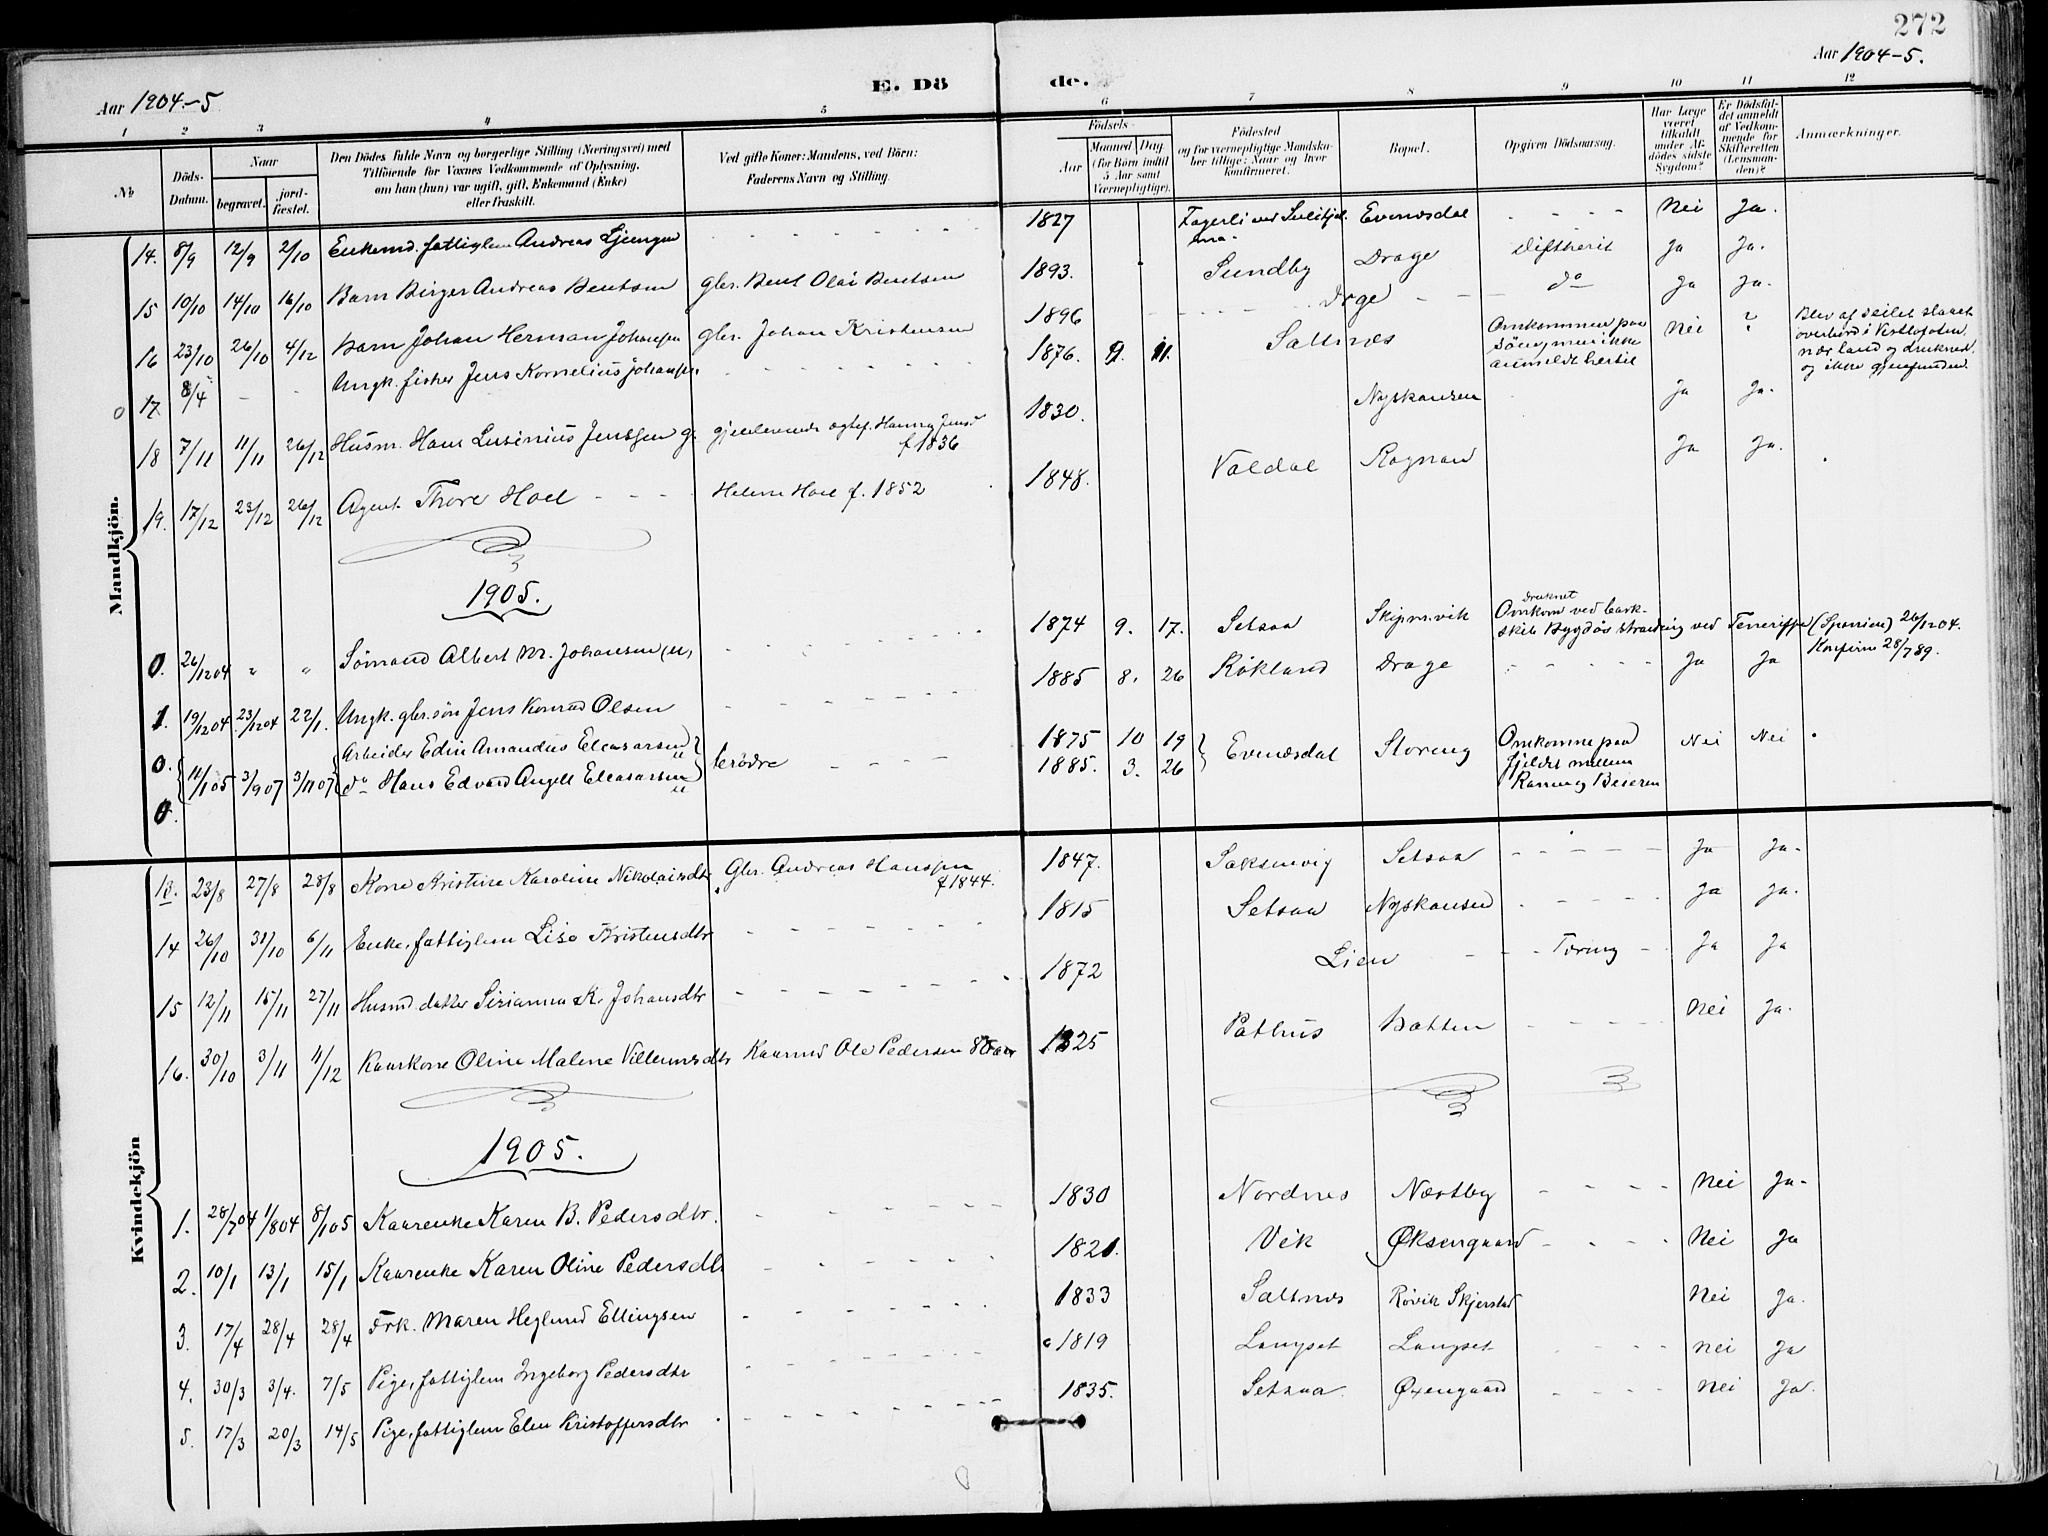 272
Aar 1904-5.
E. Dö de.
Aar 1904-5
1 2 3 4 5 6 7 8 9 10 11 12
№
Döds-
Datum.
Naar
begravet. jord-
fæstet.
Den Dödes fulde Navn og borgerlige Stilling (Næringsvei) med
Tilföiende for Voxnes Vedkommende af Oplysning,
om han (hun) var ugift, gift, Enkemand (Enke)
eller fraskilt.
Ved gifte Koner: Mandens, ved Börn:
Faderens Navn og Stilling.
Födsels-
Aar
Maaned Dag
(for Börn indtil
5 Aar samt
Værnepligtige).
Födested
og for værnepligtige Mandska-
ber tillige: Naar og hvor
konfirmeret.
Bopæl.
Opgiven Dödsaarsag.
Har Læge
været
tilkaldt
under Af-
dödes sidste
Sygdom?
Er Dödsfal-
det anmeldt
af Vedkom-
mende for
Skifteretten
(Lensman-
den)?
Anmærkninger.
Mandkjön.
14. 8/9 12/9 2/10 Enkemd. fattiglem Andreas Ljungen - - - - 1827 Fagerli ved Sulitjel-
ma. Evenesdal - - - - Nei Ja.
15 10/10 14/10 16/10 Barn Birger Andreas Bentsen gbr. Bent Olai Bentsen 1893. Sundby Drage Diftherit Ja Ja.
16 23/10 26/10 4/12 Barn Johan Herman Johansen gbr. Johan Kristensen 1896 - - - Drage - - - do Ja Ja.
o 17 8/4 - - Ungk. fisker Jens Kornelius Johansen - - - - 1876. 9. 11. Saltnes Omkommen paa
Söen men ikke
anmeldt hertil Nei ? Blev af seilet slaaet
overbord i Vestlofoten
nær land og druknede
og ikke gjenfunden.
18 7/11 11/11 26/12 Husm. Hans Lusinius Jenssen g. gjenlevende egtef. Hanna Jens.
f. 1836 1830. Nyskansen Ja Ja.
19. 17/12 23/12 26/12 Agent Thore Hoel - - - Helene Hoel f. 1852 1848. Valdal Rognan Ja Ja.
1905.
0. 26/12 04 " " Sömand Albert M. Johansen (u) - - - - 1874 9. 17. Setsaa Skipm.vik druknet
Omkom ved bark-
skib Bygdös stranding ved Teneriffe (Spanien) 26/12 04.
Konfirm 28/7 89.
1. 19/12 04 23/12 04 22/1. Ungk. gbr.sön Jens Konrad Olsen - - - - 1885 8. 26 Kökland Drage - - - - Ja Ja
0. 11/1 05 3/9 07 3/11 07 Arbeider Edin Amandus Eleasarsen u brödre - - - - 1875 10 19 Evenesdal Storeng Omkomne paa
fjeldet mellem
Ranen og Beieren Nei Nei
0. do Hans Edvard Angell Eleasarsen u 1885. 3. 26
Kvindekjön
13. 23/8 27/8 28/8 Kone Kristine Karoline Nikolaisdtr. Gbr. Andreas Hanssen
f 1844. 1847. Saksenvig Setsaa - - - - Ja Ja.
14 26/10 31/10 6/11 Enke, fattiglem Lise Kristensdtr - - - - 1815 Setsaa Nyskansen - - - - Ja Ja.
15 12/11 15/11 27/11 Husmd datter Sirianna K. Johansdtr - - - - 1872 Lien - - - Tæring - Ja Ja
16. 30/10 3/11 11/12 Kaarkone Oline Malene Villumsdtr Kaarmd Ole Pedersen 80 aar 1825 Pothus Botten - - - - Nei Ja.
1905.
1. 28/7 04 1/8 04 8/1 05 Kaarenke Karen B. Pedersdtr. - - - - 1830 Nordnes Næstby - - - - Nei Ja.
2. 10/1 13/1 15/1 Kaarenke Karen Oline Pedersdtr - - - - 1821. Vik Øksengaard - - - - Nei Ja
3. 17/4 28/4 28/4 Frk. Maren Heglund Ellingsen - - - - 1833 Saltnes Rövik Skjerstad Nei Ja.
4. 30/3 3/4. 7/5 Pige, fattiglem Ingeborg Pedersdtr - - - - 1819 Langset Langset - - - - Nei Ja
5. 17/3 20/3 14/5 Pige, fattiglem Elen Kristoffersdtr - - - - 1835. Setsaa. Øxengaard - - - - Nei Ja.